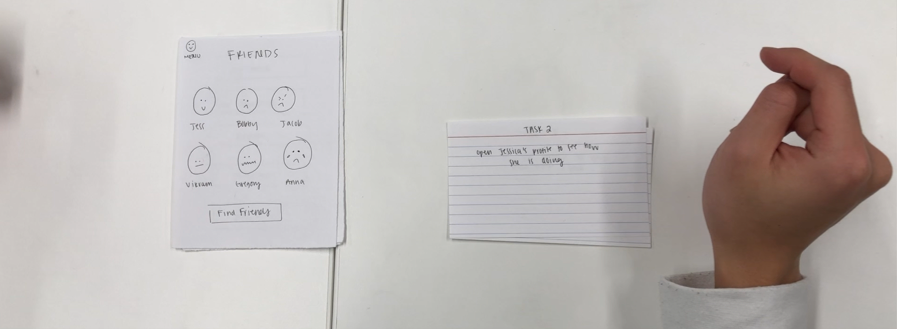 MENU
FRIENDS
Tess
Bobby
Jacob
Vikram
Gregory
Anna
Find Friends
TASK 2
open Jessica's profile to see how
she is doing